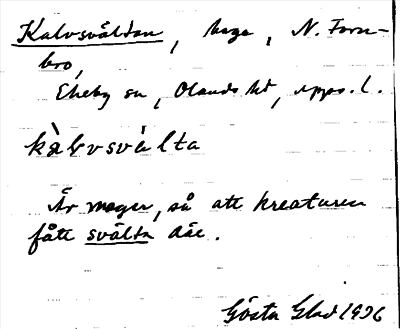 Kalvsvältan, hage, N. Forn-
bro,
Ekeby sn, Olands hd, Upps. l.
kàlvsvàlta
Är mager, så att kreaturen
fått svälta där.
Gösta Glad 1926